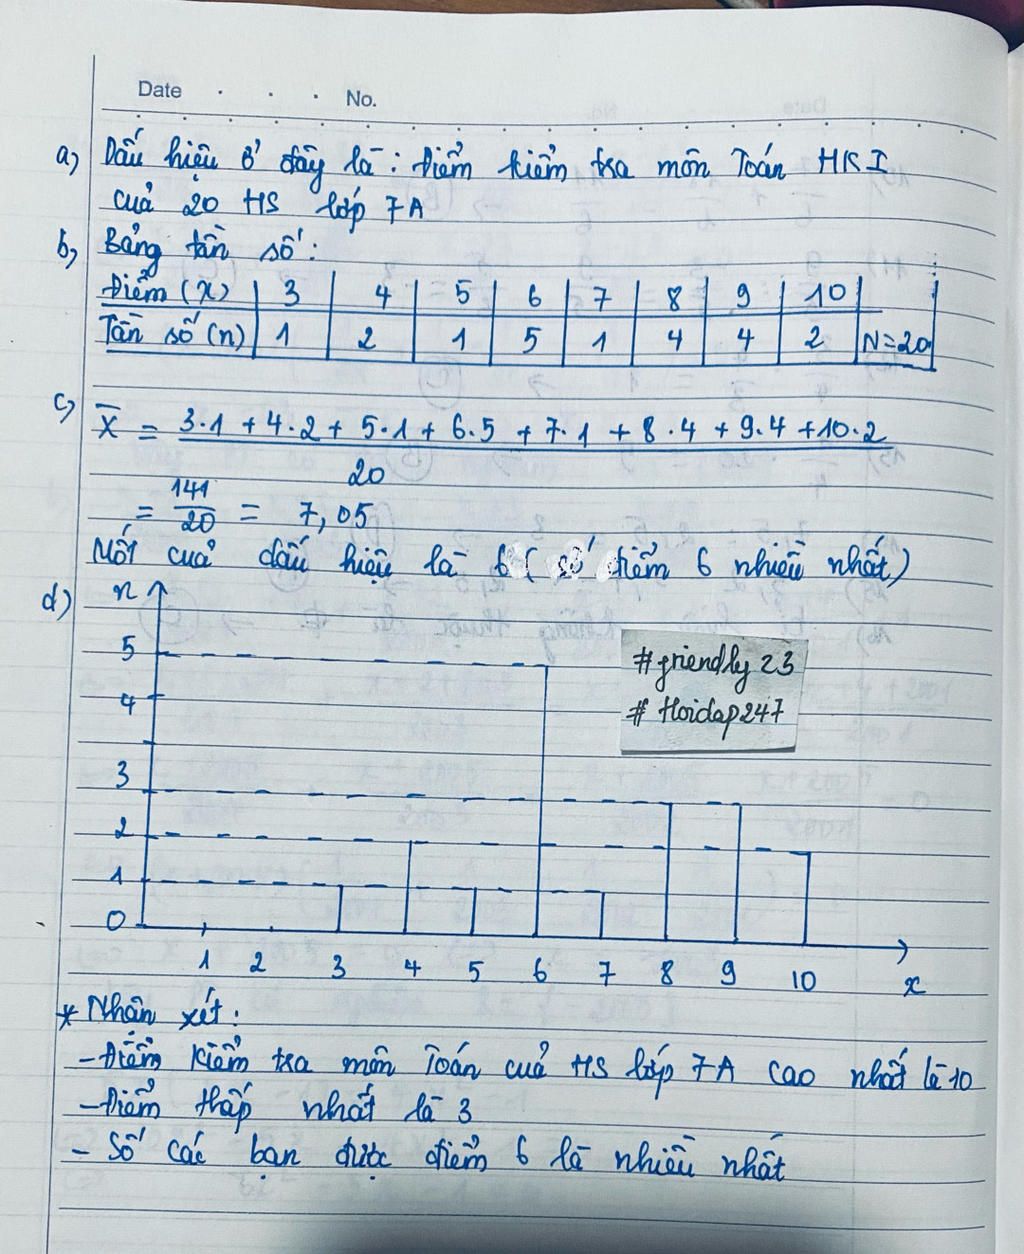 Date . . . No.
a) Dấu hiệu ở đây là: Điểm kiểm tra môn Toán HKI
của 20 HS lớp 7A
b) Bảng tần số:
Điểm (x) 3 4 5 6 7 8 9 10
Tần số (n) 1 2 1 5 1 4 4 2 N=20
c) X̅ = 3.1 + 4.2 + 5.1 + 6.5 + 7.1 + 8.4 + 9.4 + 10.2
20
= 141/20 = 7,05
Mốt của dấu hiệu là 6 (số điểm 6 nhiều nhất)
d) n
#friendly23
5
# Hoidap247
4
3
2
1
0
1 2 3 4 5 6 7 8 9 10 x
* Nhận xét:
- Điểm kiểm tra môn Toán của HS lớp 7A cao nhất là 10
- Điểm thấp nhất là 3
- Số các bạn được điểm 6 là nhiều nhất